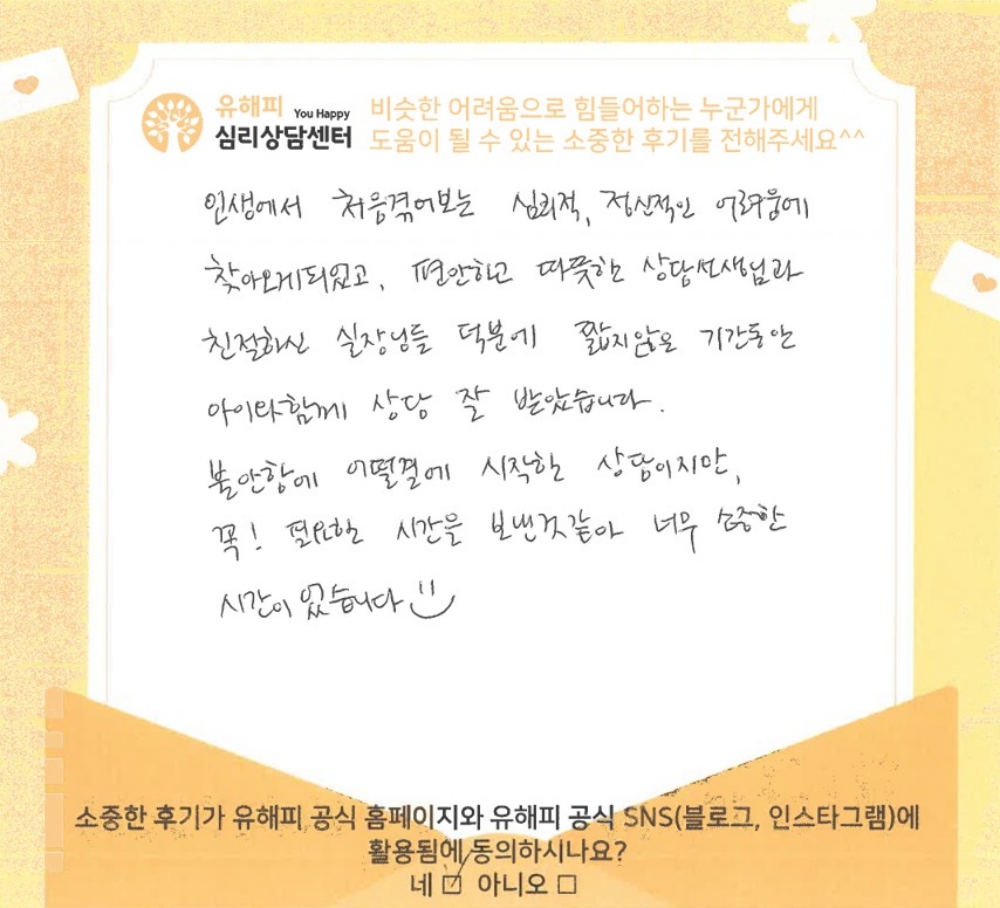 유해피 You Happy
심리상담센터
비슷한 어려움으로 힘들어하는 누군가에게
도움이 될 수 있는 소중한 후기를 전해주세요^^
인생에서 처음겪어보는 심리적, 정신적인 어려움에
찾아오게되었고, 편안하고 따뜻한 상담선생님과
친절하신 실장님들 덕분에 짧지않은 기간동안
아이와함께 상담 잘 받았습니다.
불안함에 어떨결에 시작한 상담이지만,
꼭! 필요한 시간을 보낸것같아 너무 소중한
시간이 었습니다
소중한 후기가 유해피 공식 홈페이지와 유해피 공식 SNS(블로그, 인스타그램)에
활용됨에 동의하시나요?
네 ☑ 아니오 □